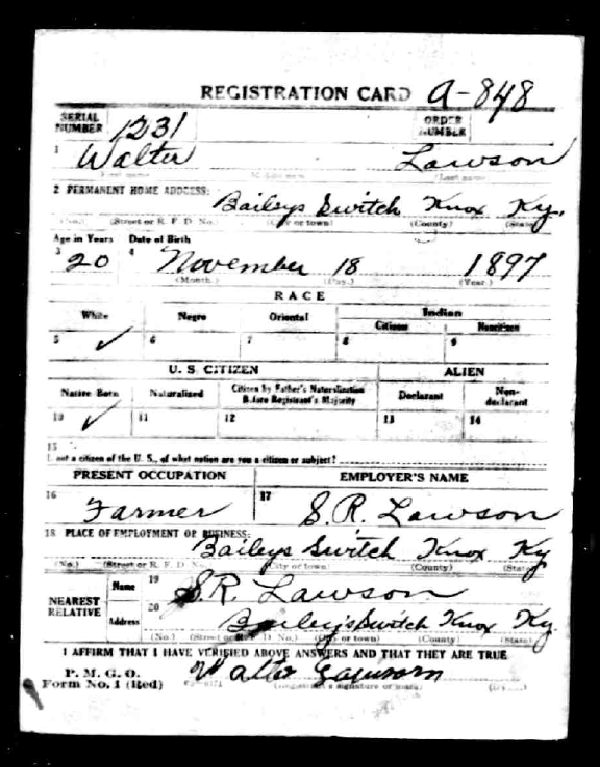 REGISTRATION CARD A-848
SERIAL NUMBER 1231 ORDER NUMBER
1 Walter Lawson
(First name) (Middle name) (Last name)
2 PERMANENT HOME ADDRESS:
Baileys Switch Knox Ky.
(No.) (Street or R. F. D. No.) (City or town) (County) (State)
Age in Years Date of Birth
3 20 4 November 18 1897
(Month.) (Day.) (Year.)
RACE
White Negro Oriental Indian
Citizen Noncitizen
5 ✓ 6 7 8 9
U. S. CITIZEN ALIEN
Native Born Naturalized Citizen by Father's Naturalization Before Registrant's Majority Declarant Non-declarant
10 ✓ 11 12 13 14
15
If not a citizen of the U. S., of what nation are you a citizen or subject?
PRESENT OCCUPATION EMPLOYER'S NAME
16 Farmer 17 S.R. Lawson
18 PLACE OF EMPLOYMENT OR BUSINESS:
Baileys Switch Knox Ky
(No.) (Street or R. F. D. No.) (City or town) (County) (State)
NEAREST RELATIVE Name 19 S.R. Lawson
Address 20 Bailey's Switch Knox Ky.
(No.) (Street or R. F. D. No.) (City or town) (County) (State)
I AFFIRM THAT I HAVE VERIFIED ABOVE ANSWERS AND THAT THEY ARE TRUE
P. M. G. O.
Form No. 1 (Red) Walter
(Registrant's signature or mark)